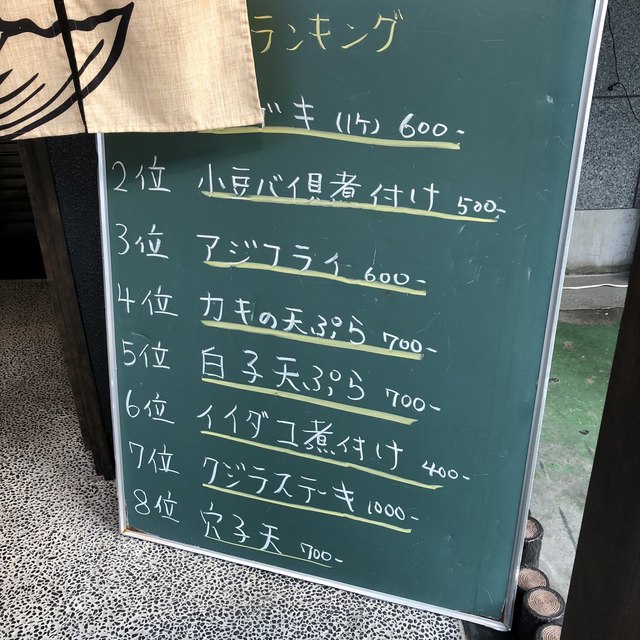 ランキング
キ (1ケ) 600-
2位 小豆バイ倶煮付け 500-
3位 アジフライ 600-
4位 カキの天ぷら 700-
5位 白子天ぷら 700-
6位 イイダコ煮付け 400-
7位 クジラステーキ 1000-
8位 穴子天 700-